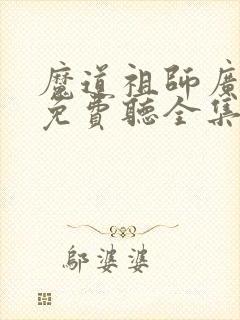 魔道祖師廣
免費聽全集
鄔婆婆